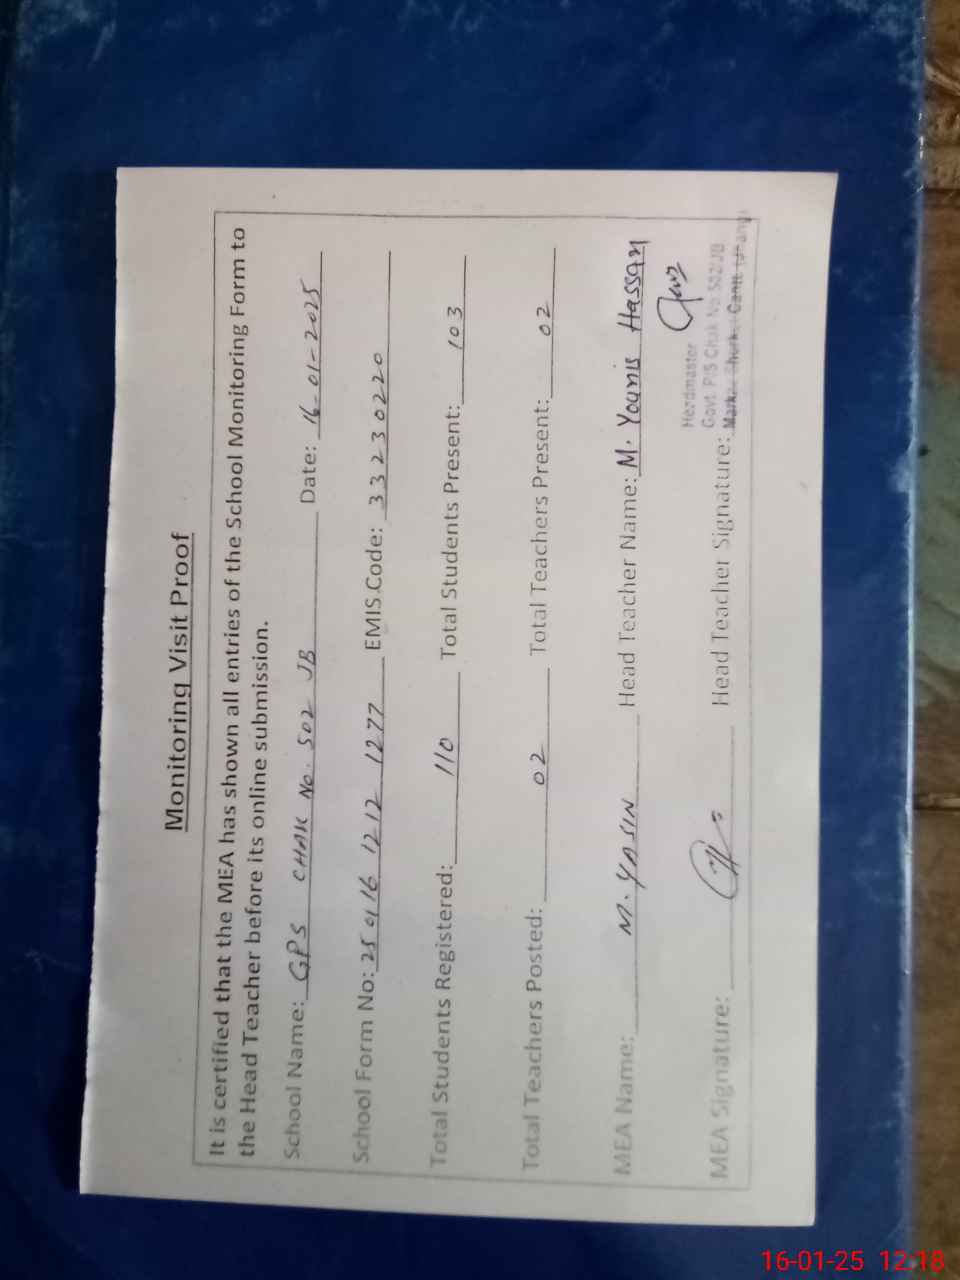 Monitoring Visit Proof
It is certified that the MEA has shown all entries of the School Monitoring Form to
the Head Teacher before its online submission.
School Name: GPS CHAK No. 502 JB Date: 16-01-2025
School Form No: 25 01 16 1212 1277 EMIS.Code: 33230220
Total Students Registered: 110 Total Students Present: 103
Total Teachers Posted: 02 Total Teachers Present: 02
MEA Name: M. YASIN Head Teacher Name: M. Younis Hassan
Headmaster
Govt. P/S Chak No 502/JB
MEA Signature: Head Teacher Signature:
16-01-25 12:18